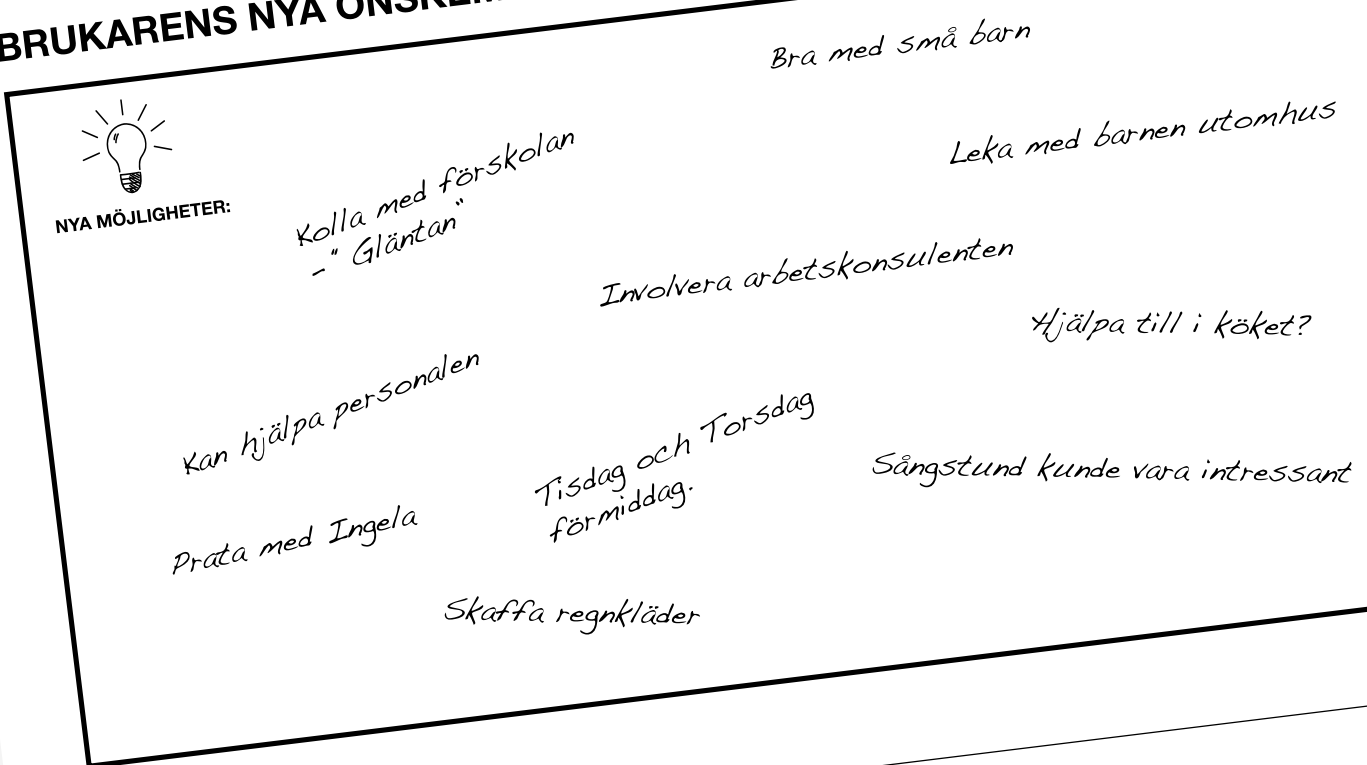 BRUKARENS NYA
Bra med små barn
Leka med barnen utomhus
Kolla med förskolan
-"Gläntan"
NYA MÖJLIGHETER:
Involvera arbetskonsulenten
Hjälpa till i köket?
Kan hjälpa personalen
Tisdag och Torsdag
förmiddag.
Sångstund kunde vara intressant
Prata med Ingela
Skaffa regnkläder